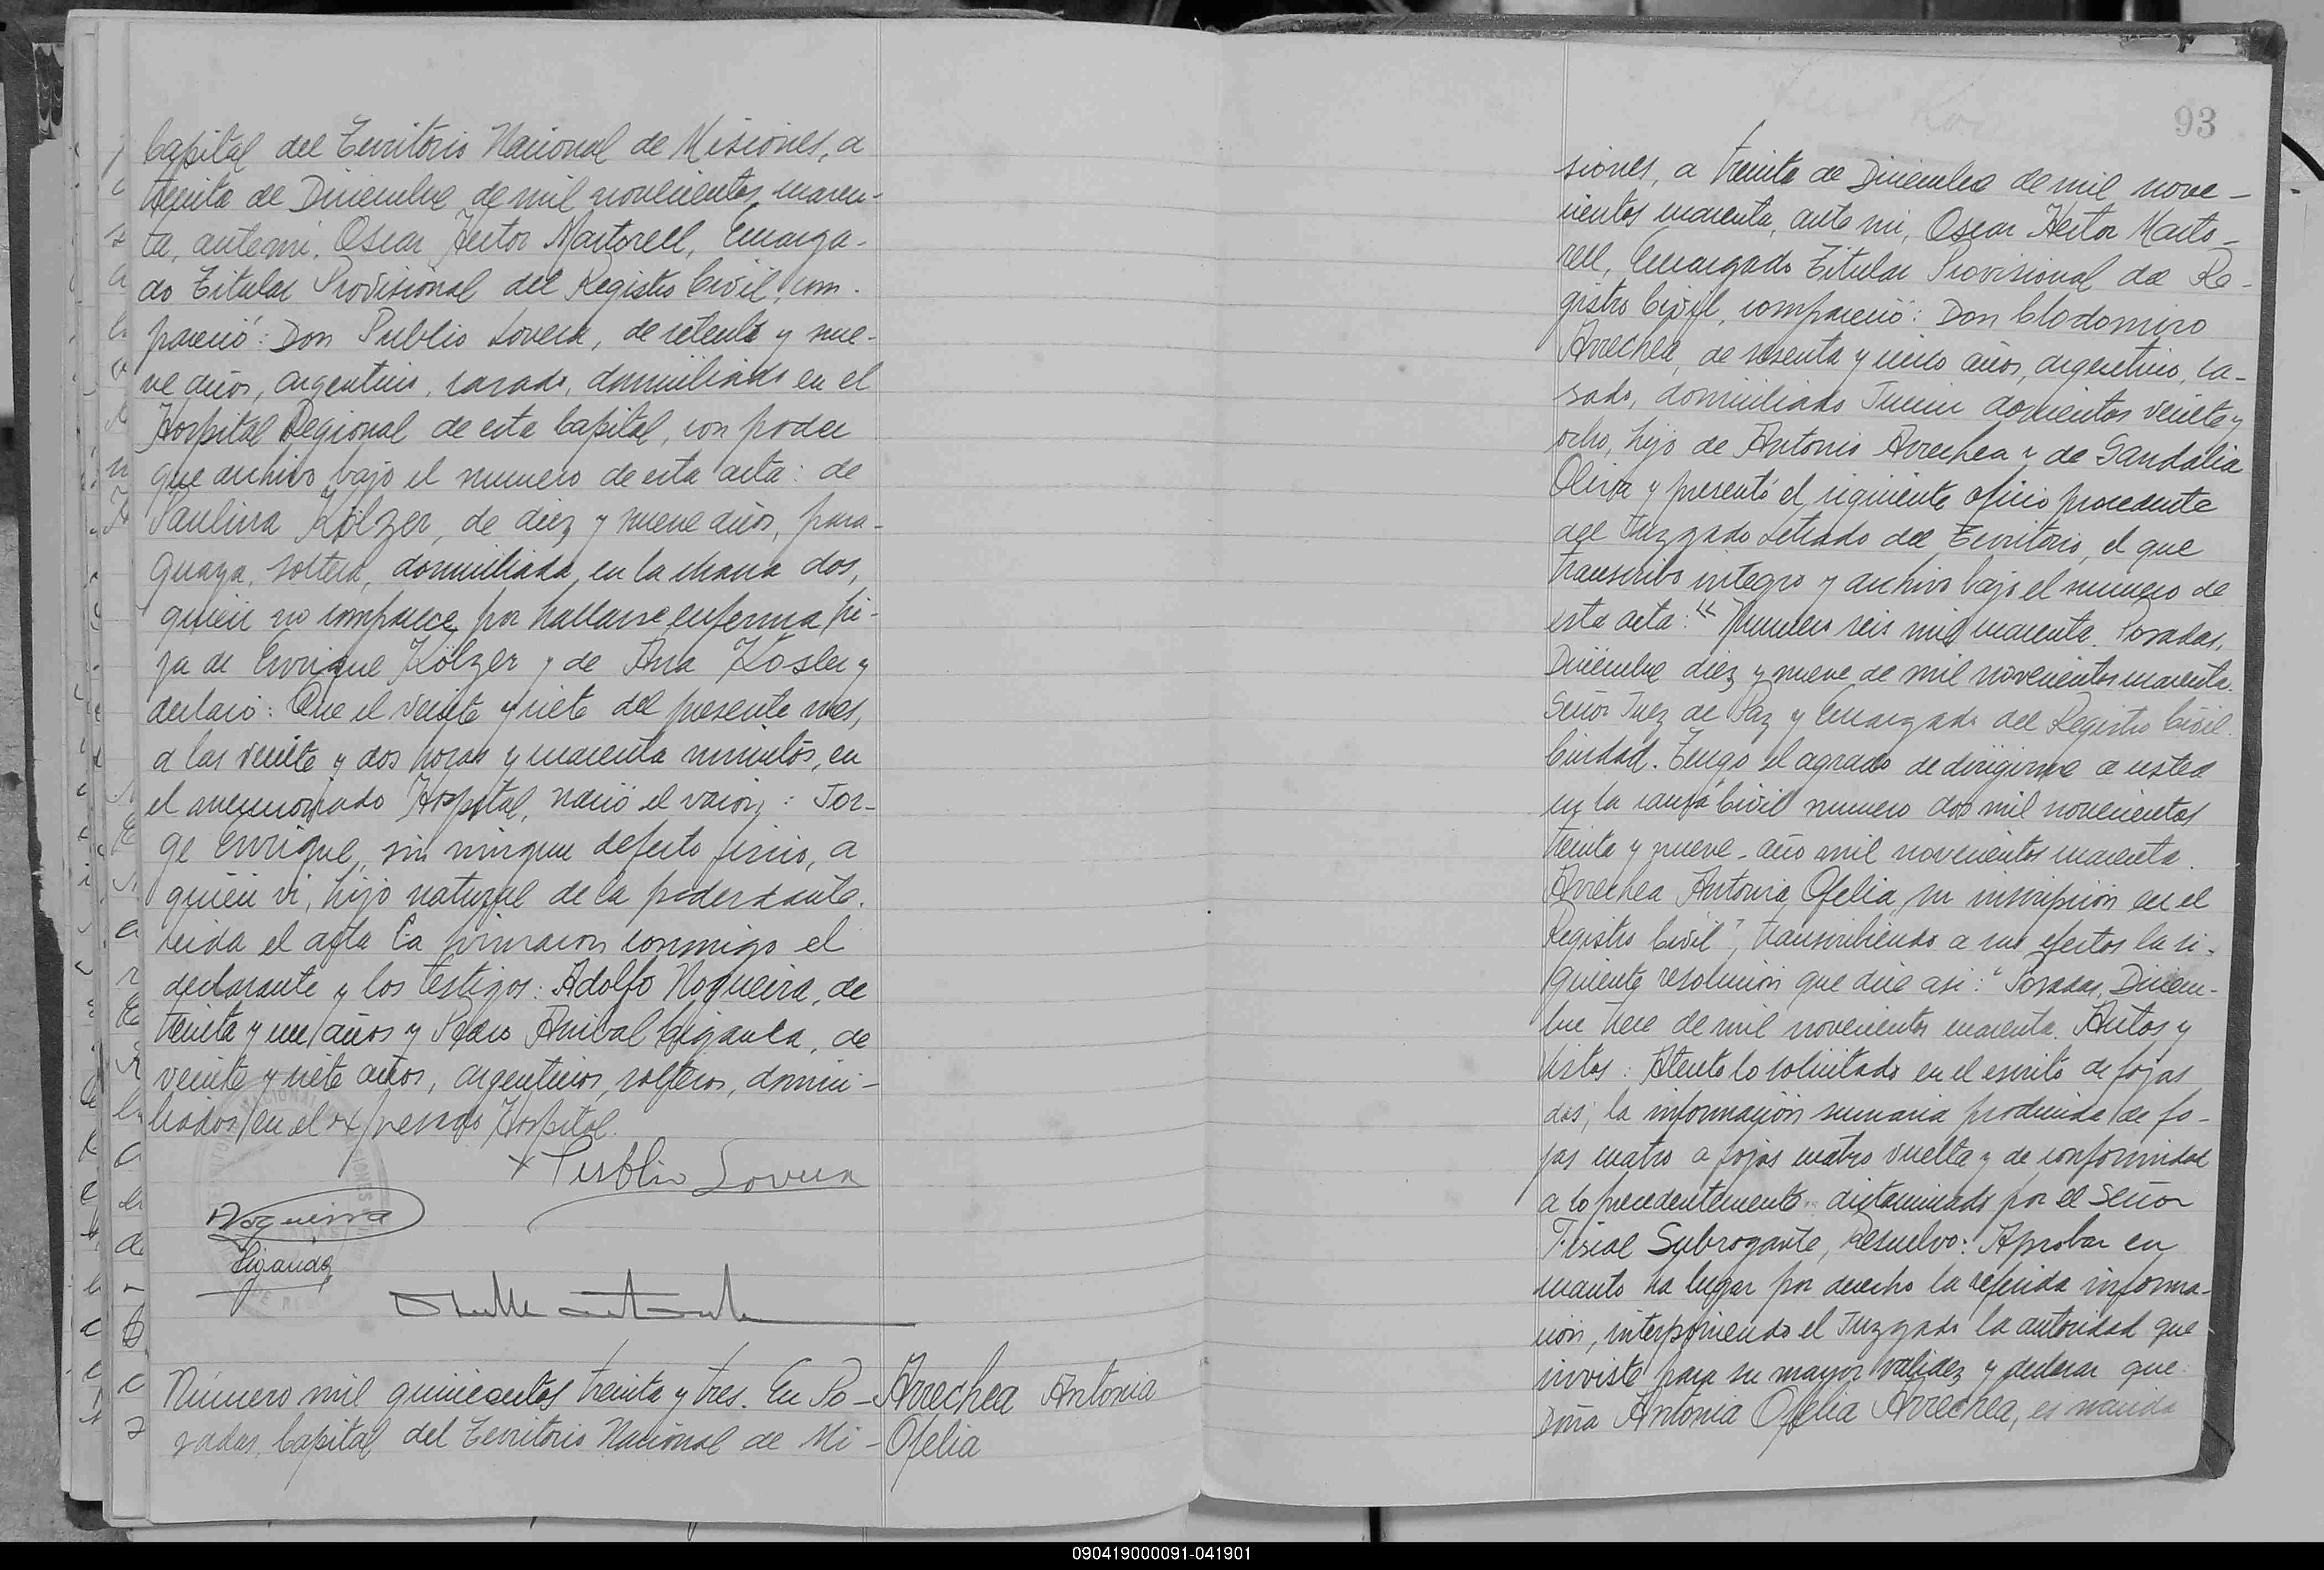 Capital del Territorio Nacional de Misiones, a
treinta de Diciembre de mil novecientos cuaren-
ta, ante mi, Oscar Hector Martorell, Encarga-
do Titular Provisional del Registro Civil, com-
pareció: Don Publio Lovera, de setenta y nue-
ve años, argentino, casado, domiciliado en el
Hospital Regional de esta Capital, con poder
que archivo bajo el numero de esta acta: de
Paulina Kölzer, de diez y nueve años, para-
guaya, soltera, domiciliada en la chacra dos,
quien no comparece por hallarse enferma, hi-
ja de Enrique Kölzer y de Ana Kosler y
declaró: Que el veinte y siete del presente mes,
a las veinte y dos horas y cuarenta minutos, en
el mencionado Hospital, nació el varon: Jor-
ge Enrique, sin ningun defecto fisico, a
quien vi, hijo natural de la poderdante.
Leida el acta la firmaron conmigo el
declarante y los testigos: Adolfo Nogueira, de
treinta y un años y Pedro Anibal Giganda, de
veinte y siete años, argentinos, solteros, domici-
liados en el expresado Hospital.
x Publio Lovera
Nogueira
Giganda
Número mil quinientos treinta y tres. En Po-
sadas, Capital del Territorio Nacional de Mi-
Arrechea Antonia
Ofelia
93
siones, a treinta de Diciembre de mil nove-
cientos cuarenta, ante mi, Oscar Hector Marto-
rell, Encargado Titular Provisional de Re-
gistro Civil, compareció: Don Clodomiro
Arrechea, de sesenta y cinco años, argentino, ca-
sado, domiciliado Junin doscientos veinte y
ocho, hijo de Antonio Arrechea y de Sandalia
Oliva y presentó el siguiente oficio procedente
del Juzgado Letrado del Territorio, el que
transcribo integro y archivo bajo el numero de
esta acta: "Numero seis mil cuarenta. Posadas,
Diciembre diez y nueve de mil novecientos cuarenta.
Señor Juez de Paz y Encargado del Registro Civil.
Ciudad. Tengo el agrado de dirigirme a usted
en la causa Civil numero dos mil novecientos
treinta y nueve - año mil novecientos cuarenta.
Arrechea Antonia Ofelia, su inscripcion en el
Registro Civil", transcribiendo a sus efectos la si-
guiente resolución que dice asi: "Posadas, Diciem-
bre trece de mil novecientos cuarenta. Autos y
Vistos: Atento lo solicitado en el escrito de fojas
dos; la información sumaria producida de fo-
jas cuatro a fojas cuatro vuelta y de conformidad
a lo precedentemente dictaminado por el Señor
Fiscal Subrogante, Resuelvo: Aprobar en
cuanto ha lugar por derecho la referida informa-
ción, interponiendo el Juzgado la autoridad que
inviste para su mayor validez y declarar que
Doña Antonia Ofelia Arrechea, es nacida
090419000091-041901